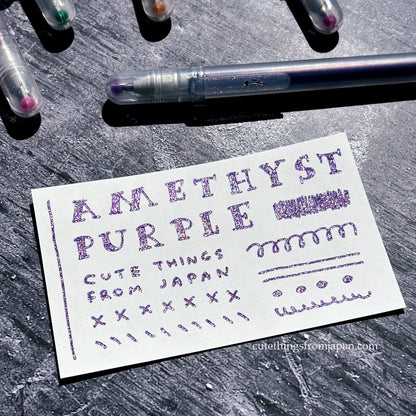 AMETHYST
PURPLE
CUTE THINGS
FROM JAPAN
× × × × × × ×
cutethingsfromjapan.com